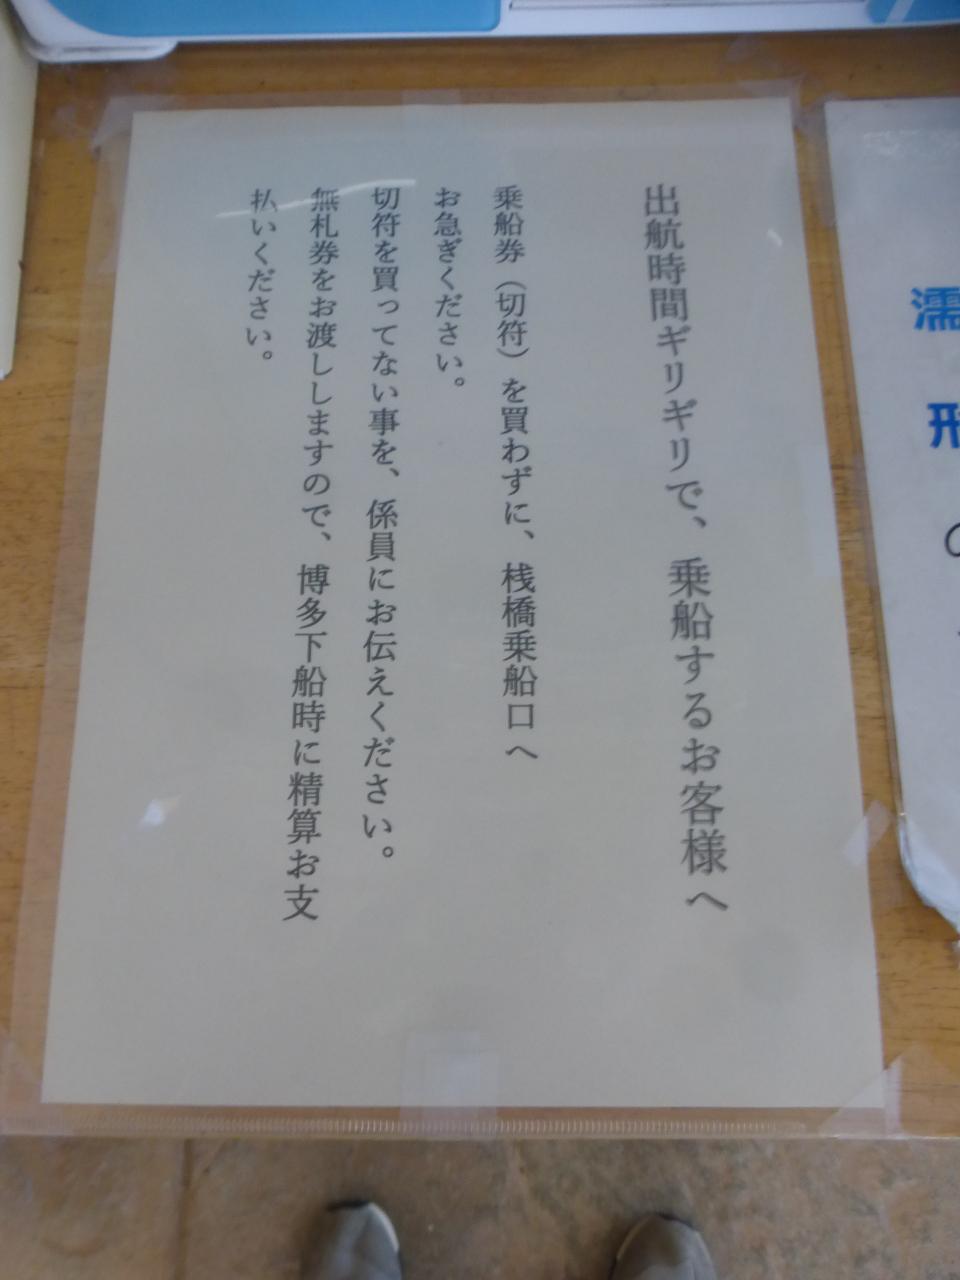 出航時間ギリギリで、乗船するお客様へ
乗船券（切符）を買わずに、桟橋乗船口へ
お急ぎください。
切符を買ってない事を、係員にお伝えください。
無札券をお渡ししますので、博多下船時に精算お支
払いください。
濡
形
の